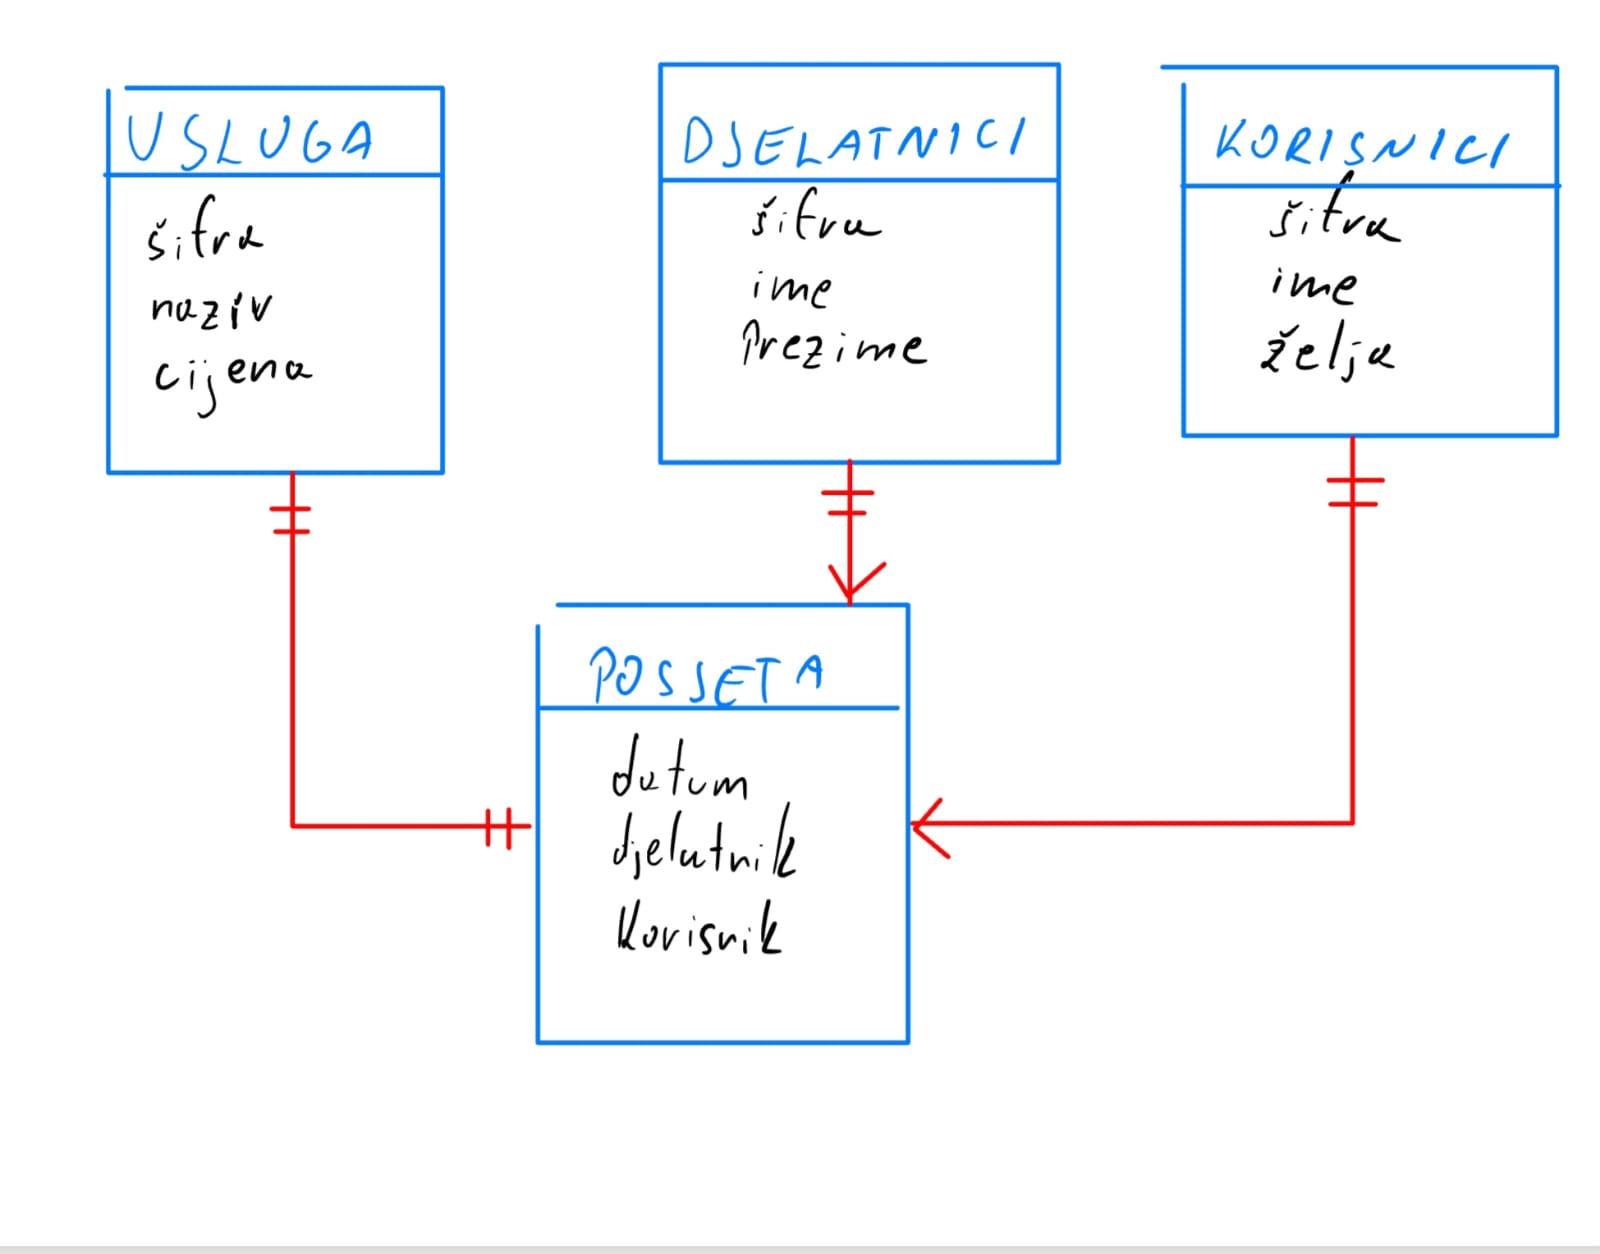 USLUGA
šifra
naziv
cijena
DJELATNICI
šifra
ime
Prezime
KORISNICI
šifra
ime
želja
POSJETA
datum
djelatnik
Korisnik